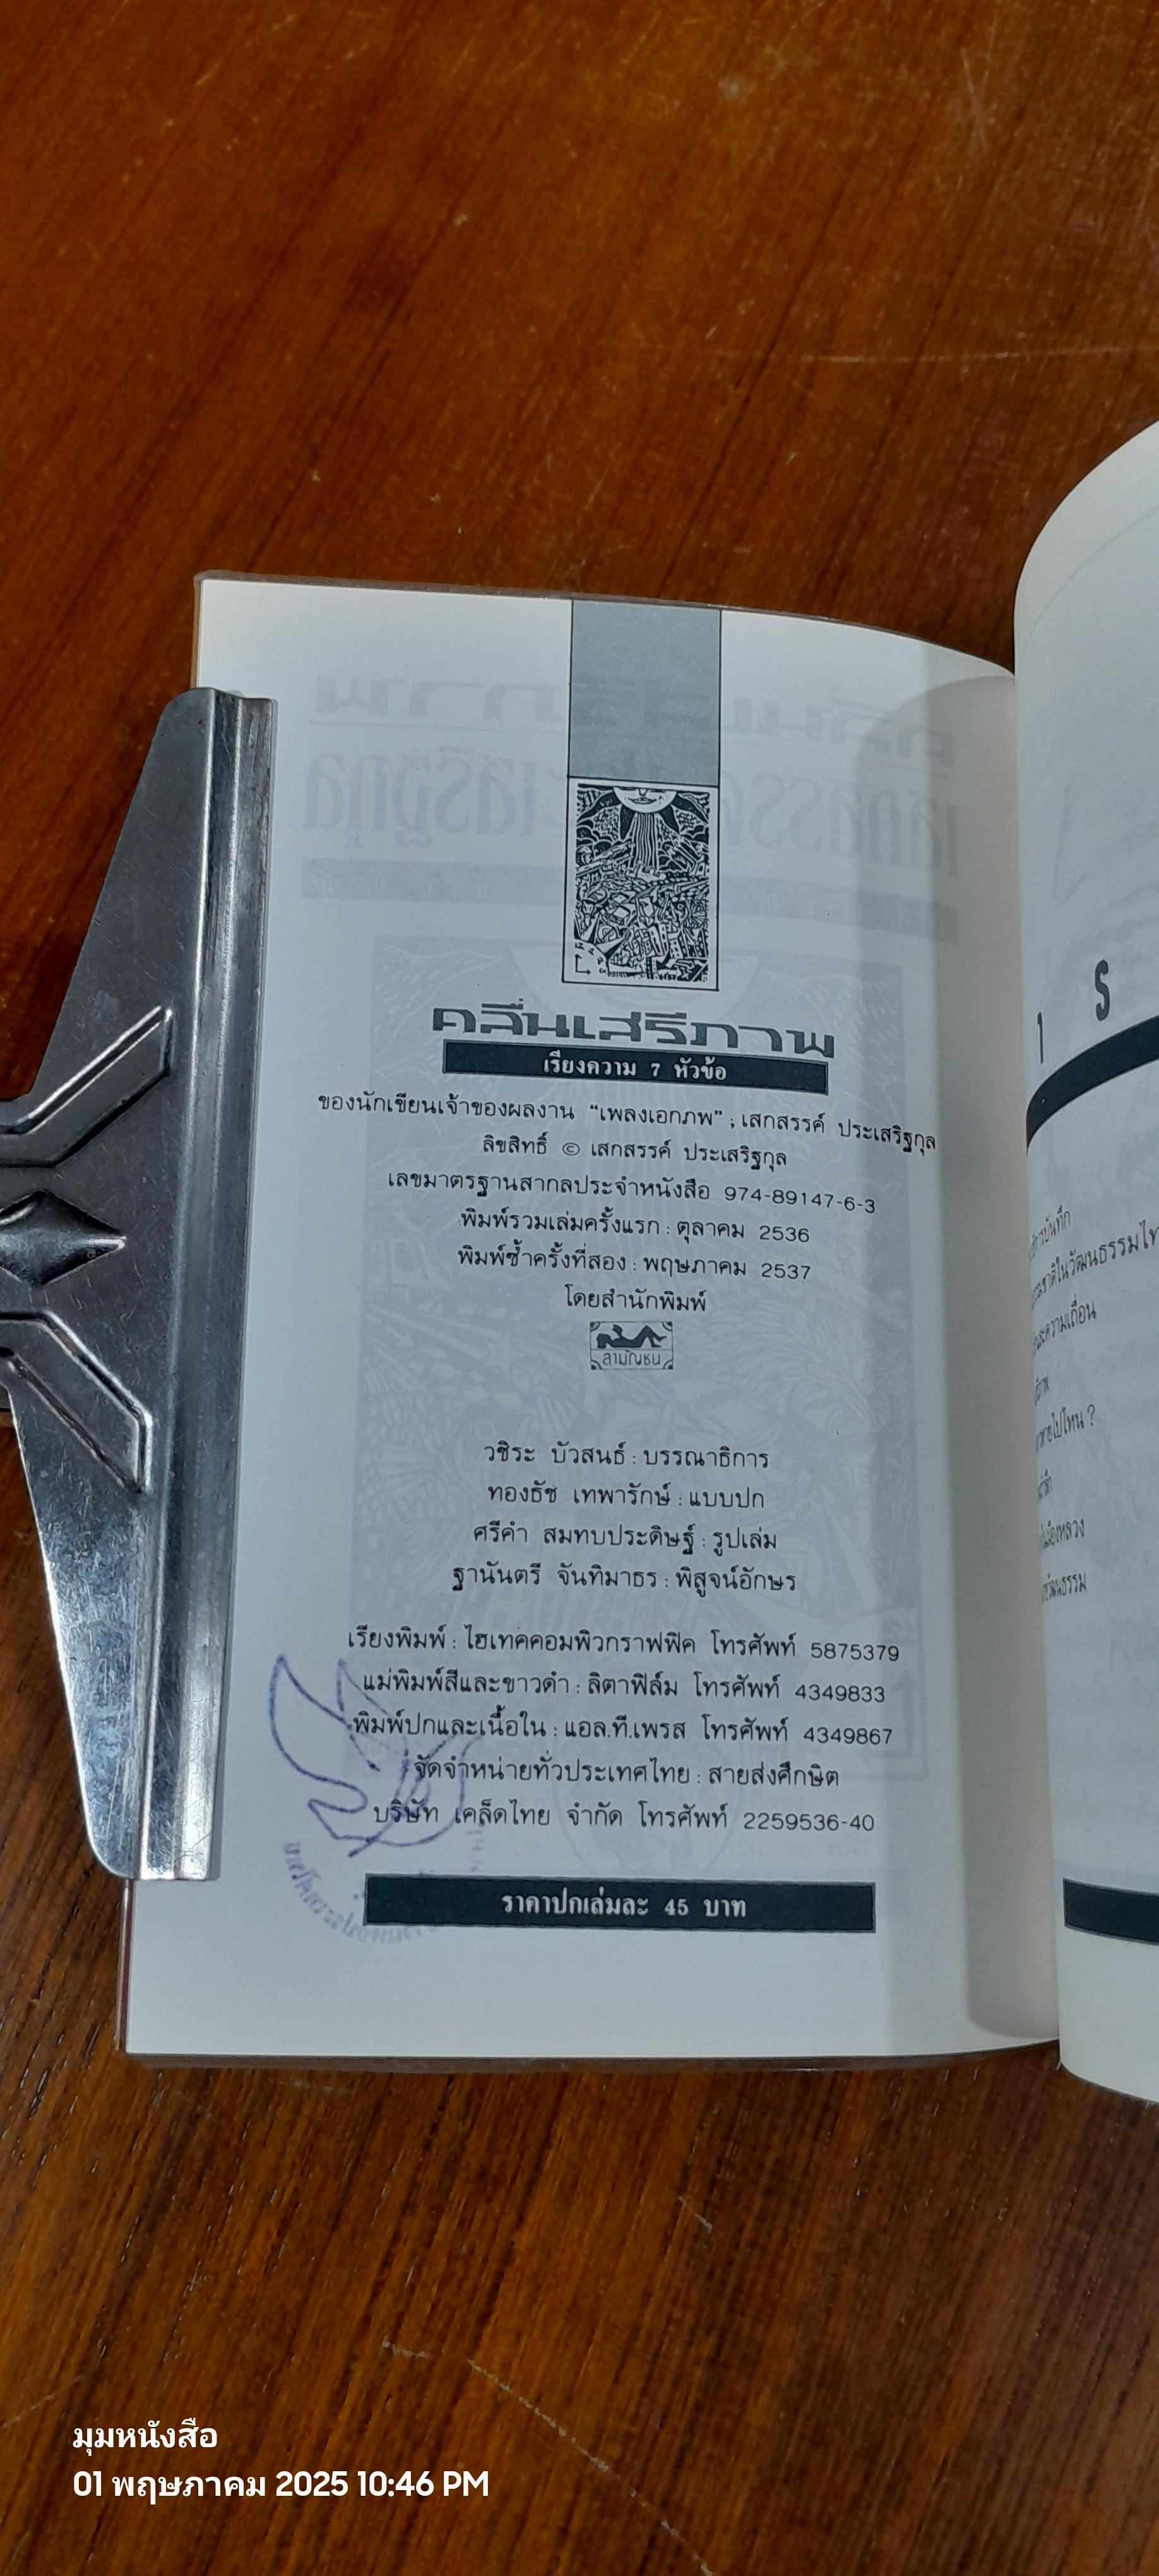 คลื่นเสรีภาพ
เรียงความ 7 หัวข้อ
ของนักเขียนเจ้าของผลงาน “เพลงเอกภพ” ; เสกสรรค์ ประเสริฐกุล
ลิขสิทธิ์ © เสกสรรค์ ประเสริฐกุล
เลขมาตรฐานสากลประจำหนังสือ 974-89147-6-3
พิมพ์รวมเล่มครั้งแรก : ตุลาคม 2536
พิมพ์ซ้ำครั้งที่สอง : พฤษภาคม 2537
โดยสำนักพิมพ์
สามัญชน
วชิระ บัวสนธ์ : บรรณาธิการ
ทองธัช เทพารักษ์ : แบบปก
ศรีคำ สมทบประดิษฐ์ : รูปเล่ม
ฐานันตรี จันทิมาธร : พิสูจน์อักษร
เรียงพิมพ์ : ไฮเทคคอมพิวกราฟฟิค โทรศัพท์ 5875379
แม่พิมพ์สีและขาวดำ : ลิตาฟิล์ม โทรศัพท์ 4349833
พิมพ์ปกและเนื้อใน : แอล.ที.เพรส โทรศัพท์ 4349867
จัดจำหน่ายทั่วประเทศไทย : สายส่งศึกษิต
บริษัท เคล็ดไทย จำกัด โทรศัพท์ 2259536-40
ราคาปกเล่มละ 45 บาท
า ร
บันทึก
ชาติในวัฒนธรรมไท
ความเถื่อน
ไปไหน ?
เมืองหลวง
วัฒนธรรม
มุมหนังสือ
01 พฤษภาคม 2025 10:46 PM